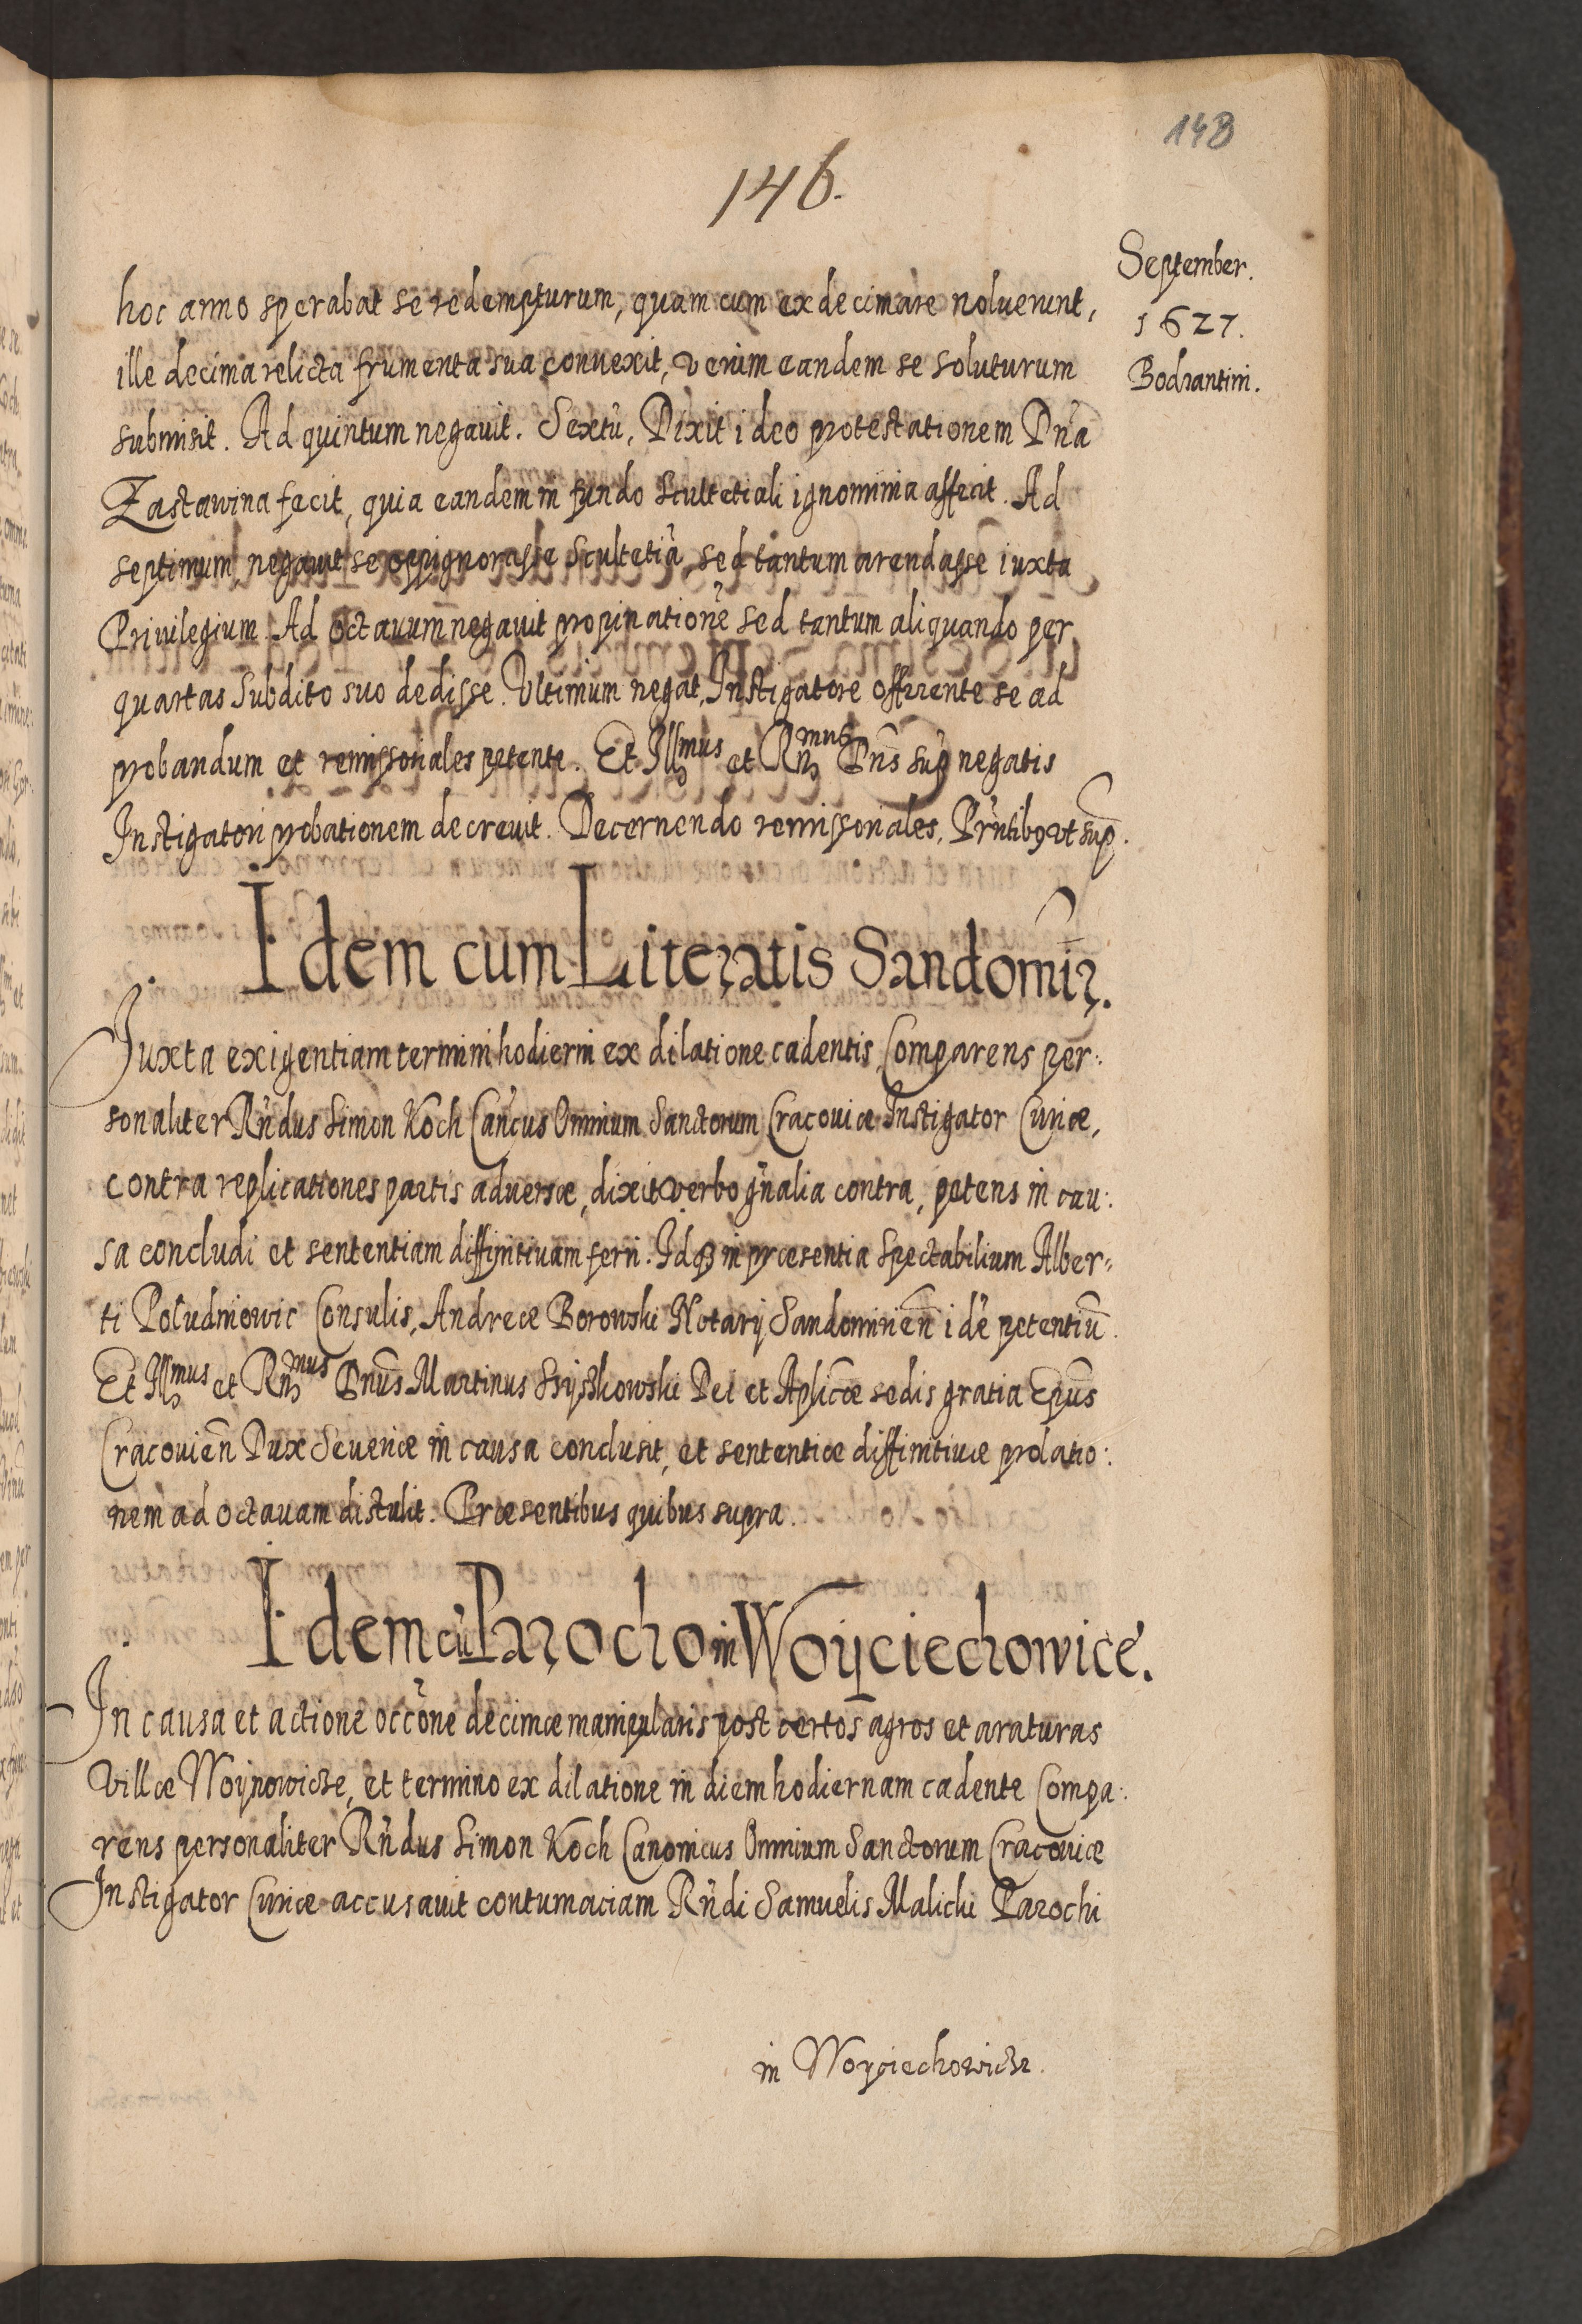 148
146.
September.
1627.
Bodzantini.
hoc anno sperabat se redempturum, quam cum exdecimare noluerunt,
ille decima relicta frumenta sua convexit, verum eandem se soluturum
submisit. Ad quintum negavit. Sextũ, Dixit ideo protestationem Dña
Zastawina fecit, quia eandem in fundo scultetiali ignominia affecit. Ad
septimum, negavit se oppignorasse scultetiã, sed tantum arendasse iuxta
Privilegium. Ad octavum negavit propinationẽ sed tantum aliquando per
quartas Subdito suo dedisse. Ultimum negat, Instigatore offerente se ad
probandum et remissoriales petente. Et Illmus et Rñmus Dñs sup negatis
Instigatori probationem decrevit. Decernendo remissoriales, Prñtibꝯ vt sup.
Idem cum Literatis Sandomir.
Iuxta exigentiam termini hodierni ex dilatione cadentis, Comparens per:
sonaliter Rñdus Simon Koch Cañcus Omnium Sanctorum Cracoviæ Instigator Curiæ,
contra replicationes partis adversæ, dixit verbo gñalia contra, petens in cau:
sa concludi et sententiam diffinitivam ferri. Idqꝫ in præsentia Spectabilium Alber:
ti Południowic Consulis, Andreæ Borowski Notarij Sandomirieñ idẽ petentiũ.
Et Illmus et Rñmus Dñus Martinus Szyszkowski Dei et Aplicæ sedis gratia Epũs
Cracovieñ Dux Severiæ in causa conclusit, et sententiæ diffinitivæ prolatio:
nem ad octavam distulit. Præsentibus quibus supra.
Idem cũ Parocho in Woyciechowicẽ.
In causa et actione occõne decimæ manipularis post certos agros et araturas
Villæ Woynowicze, et termino ex dilatione in diem hodiernam cadente Compa:
rens personaliter Rñdus Simon Koch Canonicus Omnium Sanctorum Cracoviæ
Instigator Curiæ accusavit contumaciam Rñdi Samuelis Malicki Parochi
in Woyciechowicze.